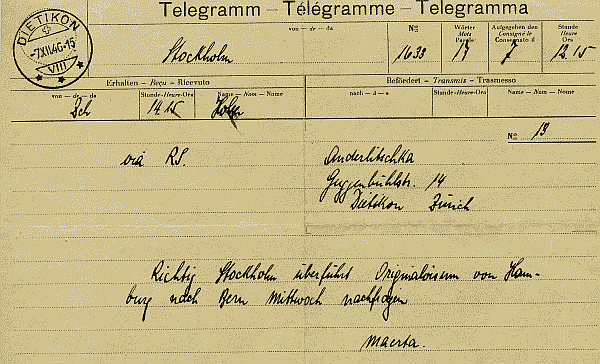 Telegramm – Télégramme – Telegramma
DIETIKON
-7.XII.46-15
VIII
von – de – da
Stockholm
Nº 1633
Wörter
Mots
Parole
19
Aufgegeben den
Consigné le
Consegnato il
7
Stunde
Heure
Ora
12.15
Erhalten – Reçu – Ricevuto
Befördert – Transmis – Trasmesso
von – de – da
Stunde-Heure-Ora
Name – Nom – Nome
nach – à – a
Stunde-Heure-Ora
Name – Nom – Nome
Zch 14.15
Nº 13
via RS.
Anderlitschka
Guggenbühlstr. 14
Dietikon Zürich
Richtig Stockholm überführt Originalvisum von Ham-
burg nach Bern Mittwoch nachfragen
Maerta.